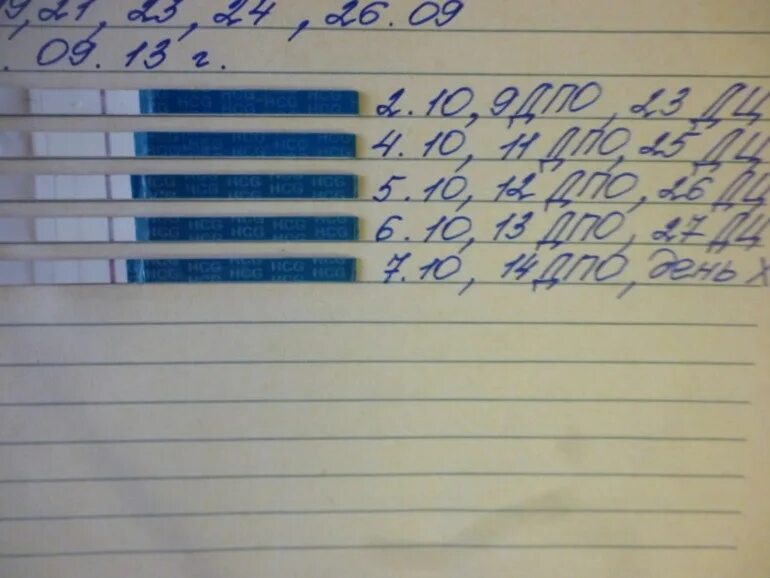 19, 21, 23, 24, 26.09
. 09.13 г.
HCG HCG-HCG HCG
HCG HCG HCG
2.10, 9 ДПО, 23 ДЦ
4.10, 11 ДПО, 25 ДЦ
HCG HCG HCG HCG
5.10, 12 ДПО, 26 ДЦ
HCG HCG HCG
6.10, 13 ДПО, 27 ДЦ
HCG HCG HCG
7.10, 14 ДПО, день X